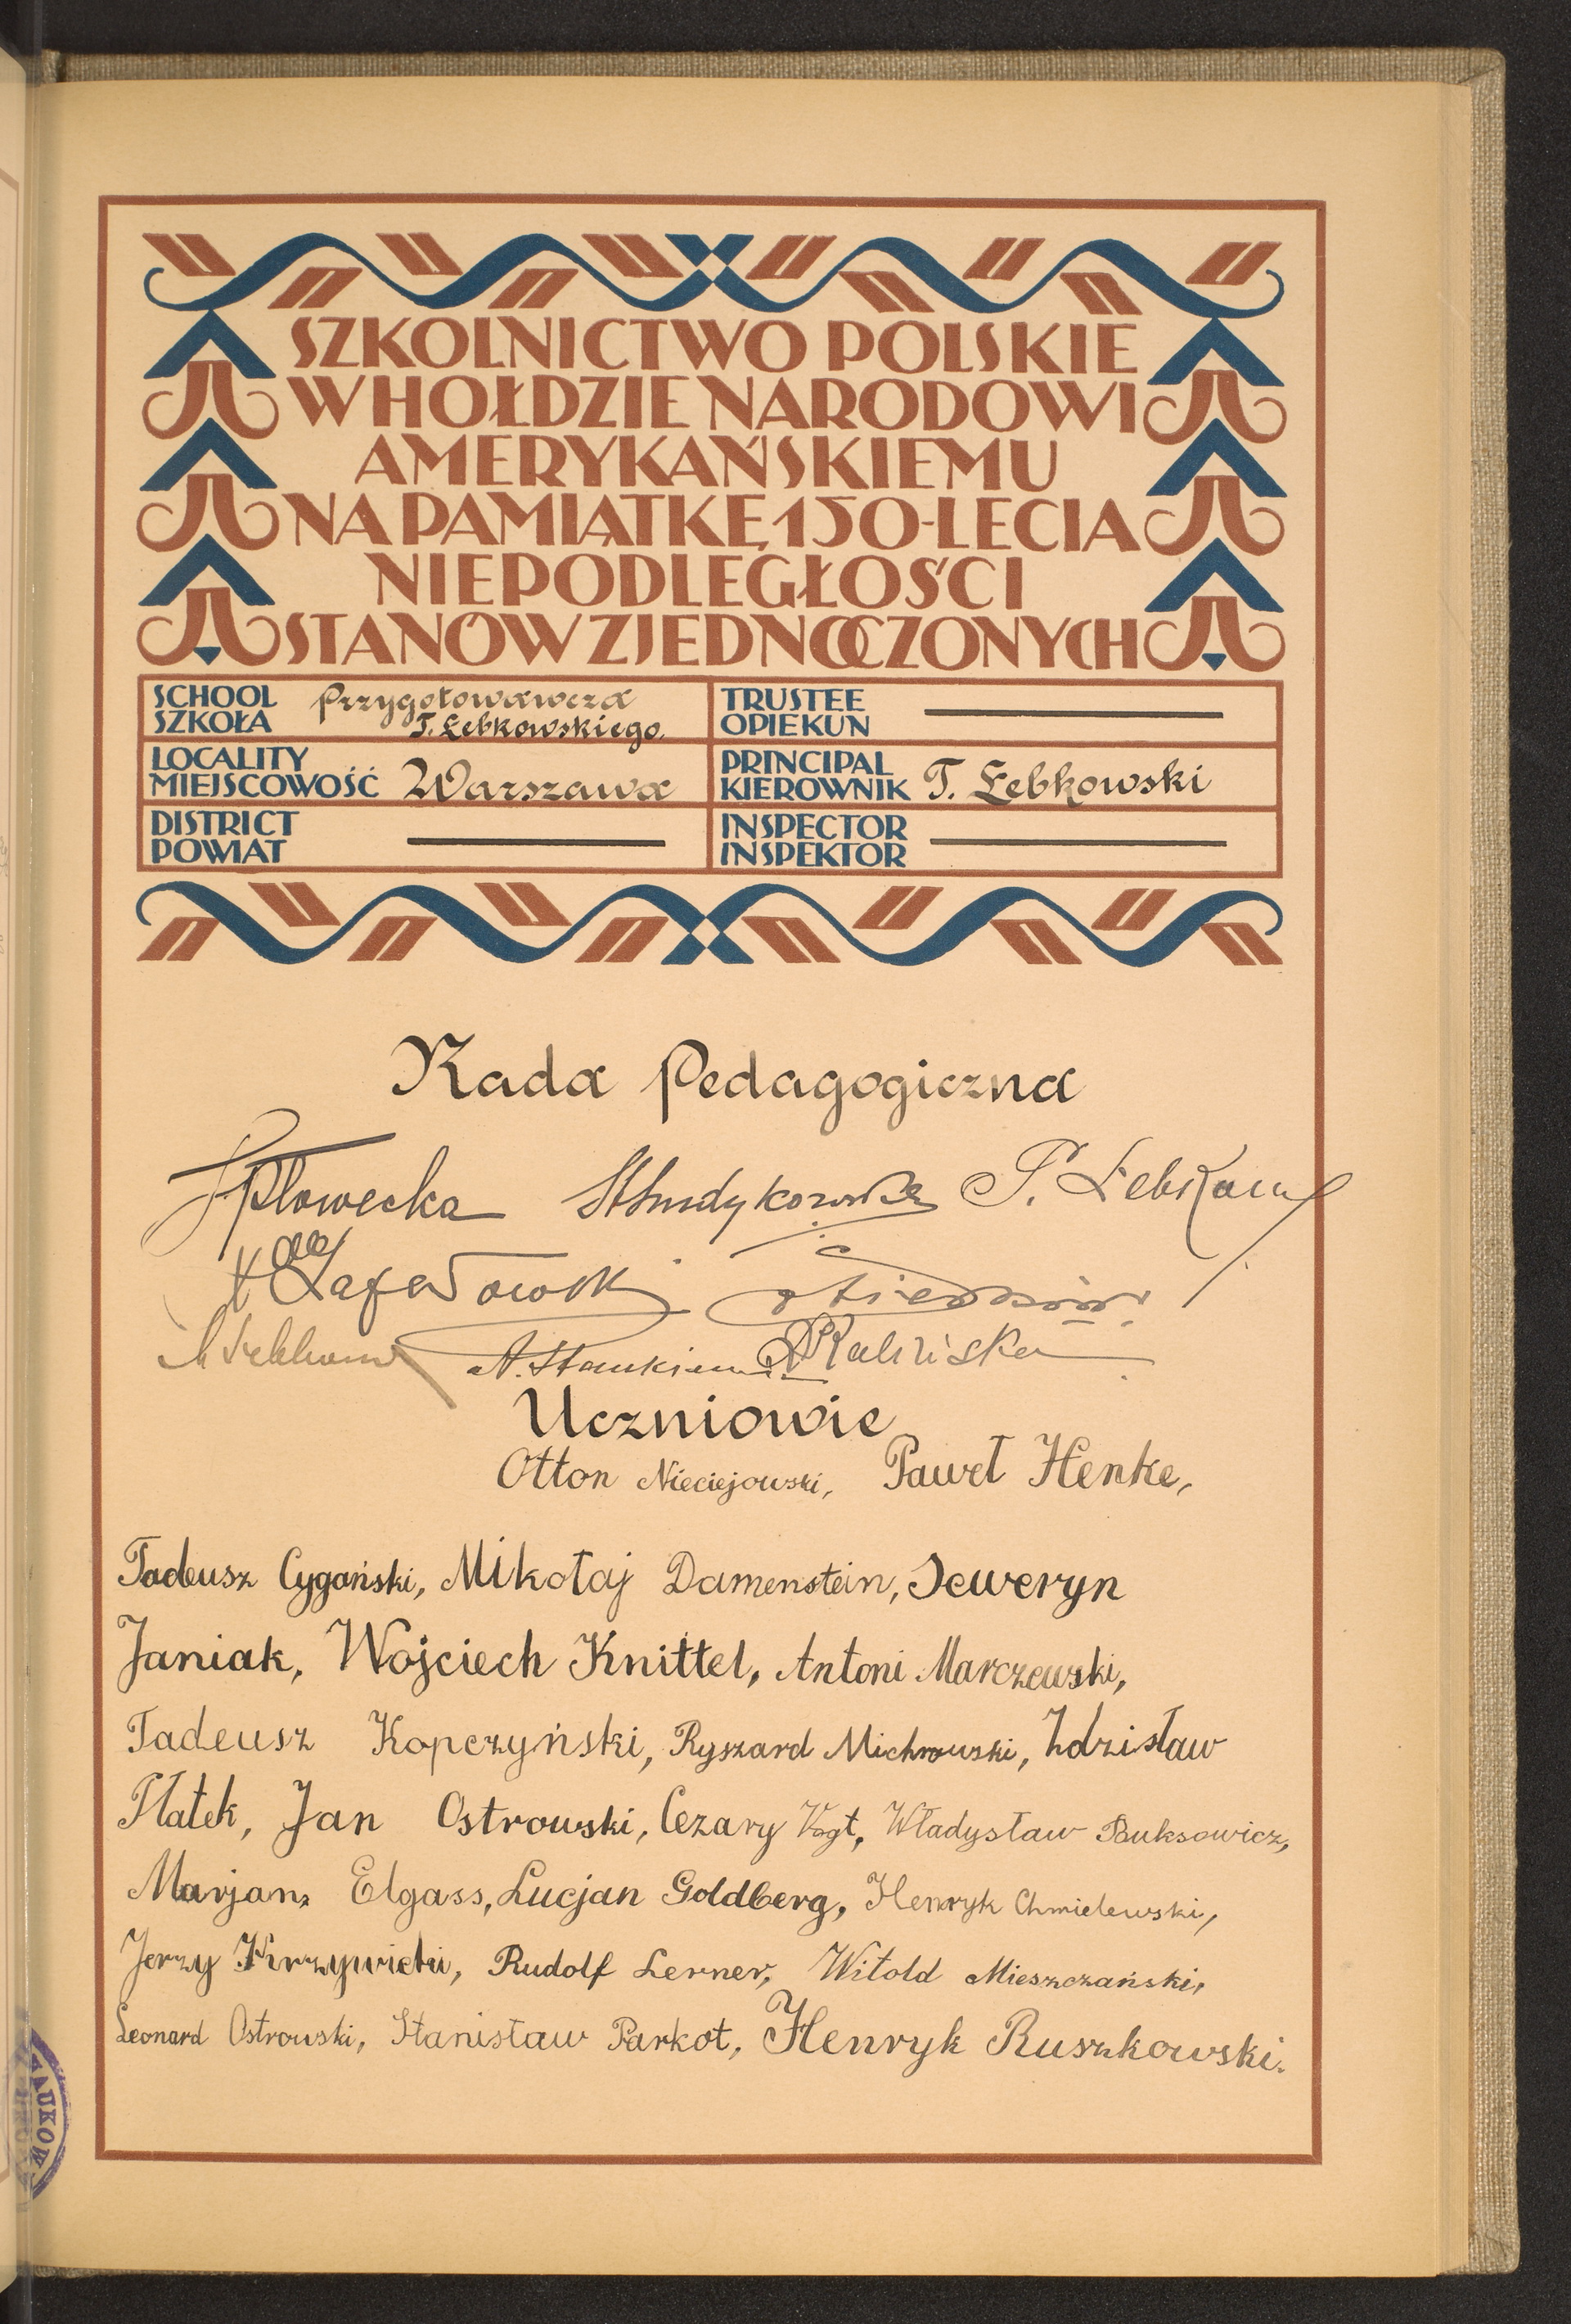 SZKOLNICTWO POLSKIE
W HOŁDZIE NARODOWI
AMERYKAŃSKIEMU
NA PAMIĄTKĘ 150-LECIA
NIEPODLEGŁOŚCI
STANÓW ZJEDNOCZONYCH
SCHOOL SZKOŁA Przygotowawcza T. Łebkowskiego
TRUSTEE OPIEKUN
LOCALITY MIEJSCOWOŚĆ Warszawa
PRINCIPAL KIEROWNIK T. Łebkowski
DISTRICT POWIAT
INSPECTOR INSPEKTOR
Rada Pedagogiczna
Płowecka
A. Stankiewicz Kalińska
Uczniowie
Otton Nieciejowski, Paweł Henke,
Tadeusz Cygański, Mikołaj Damenstein, Seweryn
Janiak, Wojciech Knittel, Antoni Marczewski,
Tadeusz Kopczyński, Ryszard Michrowski, Zdzisław
Płatek, Jan Ostrowski, Cezary Vogt, Władysław Buksowicz,
Marjan, Elgass, Lucjan Goldberg, Henryk Chmielewski,
Jerzy Krzywicki, Rudolf Lerner, Witold Mieszczański,
Leonard Ostrowski, Stanisław Parkot, Henryk Ruszkowski.
NAUKOW